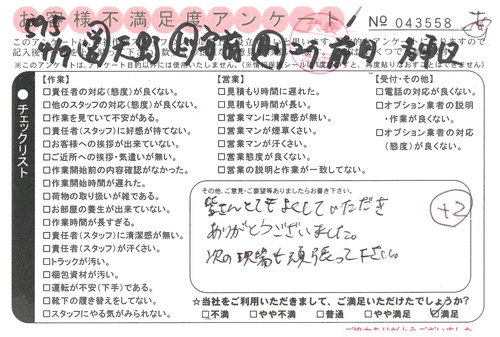 お客様不満足度アンケート
No 043558
あ
※このアンケートは、アンケート目的以外には使用いたしません。
チェックリスト
【作業】
□責任者の対応(態度)が良くない。
□他のスタッフの対応(態度)が良くない。
□作業を見ていて不安がある。
□責任者(スタッフ)に好感が持てない。
□お客様への挨拶が出来ていない。
□ご近所への挨拶・気遣いが無い。
□作業開始前の内容確認がなかった。
□作業開始時間が遅れた。
□荷物の取り扱いが雑である。
□お部屋の養生が出来ていない。
□作業時間が長すぎる。
□責任者(スタッフ)に清潔感が無い。
□責任者(スタッフ)が汗くさい。
□トラックが汚い。
□梱包資材が汚い。
□運転が不安(下手)である。
□靴下の履き替えをしてない。
□スタッフにやる気がみられない。
【営業】
□見積もり時間に遅れた。
□見積もり時間が長い。
□営業マンに清潔感が無い。
□営業マンが煙草くさい。
□営業マンが汗くさい。
□営業態度が良くない。
□営業の説明と作業が一致してない。
【受付・その他】
□電話の対応が良くない。
□オプション業者の説明
・作業が良くない。
□オプション業者の対応
(態度)が良くない。
その他、ご意見・ご要望等ありましたらお書き下さい。
皆さんとてもよくしていただき
ありがとうございました。
次の現場も頑張って下さい。
+2
☆当社をご利用いただきまして、ご満足いただけたでしょうか?
□不満 □やや不満 □普通 □やや満足 □満足
ご協力ありがとうございました